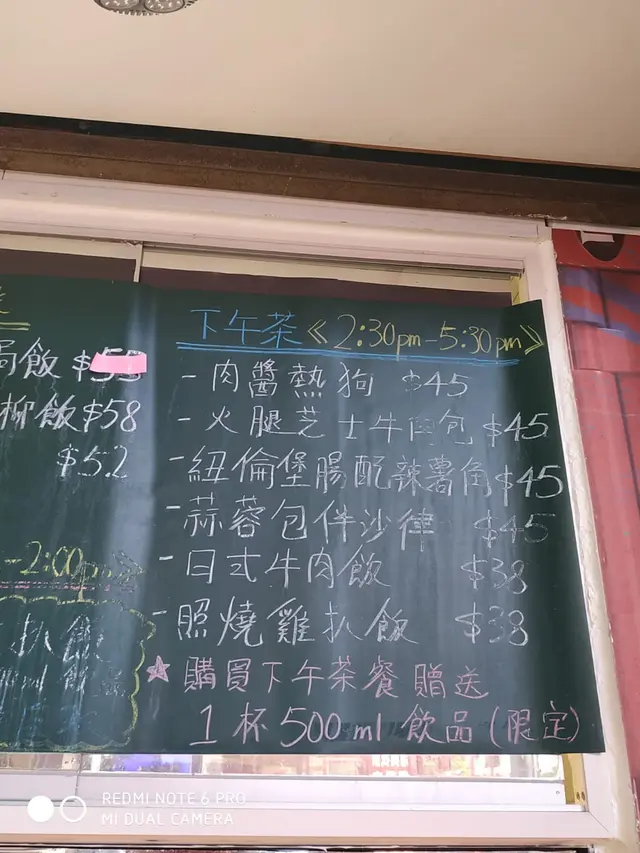 飯 $
柳飯 $58
$52
-2:00pm》
扒飯
下午茶《2:30pm-5:30pm》
- 肉醬熱狗 $45
- 火腿芝士牛肉包 $45
- 紐倫堡腸配辣薯角 $45
- 蒜蓉包伴沙律 $45
- 日式牛肉飯 $38
- 照燒雞扒飯 $38
★ 購買下午茶餐贈送
1杯500ml飲品(限定)
REDMI NOTE 6 PRO
MI DUAL CAMERA